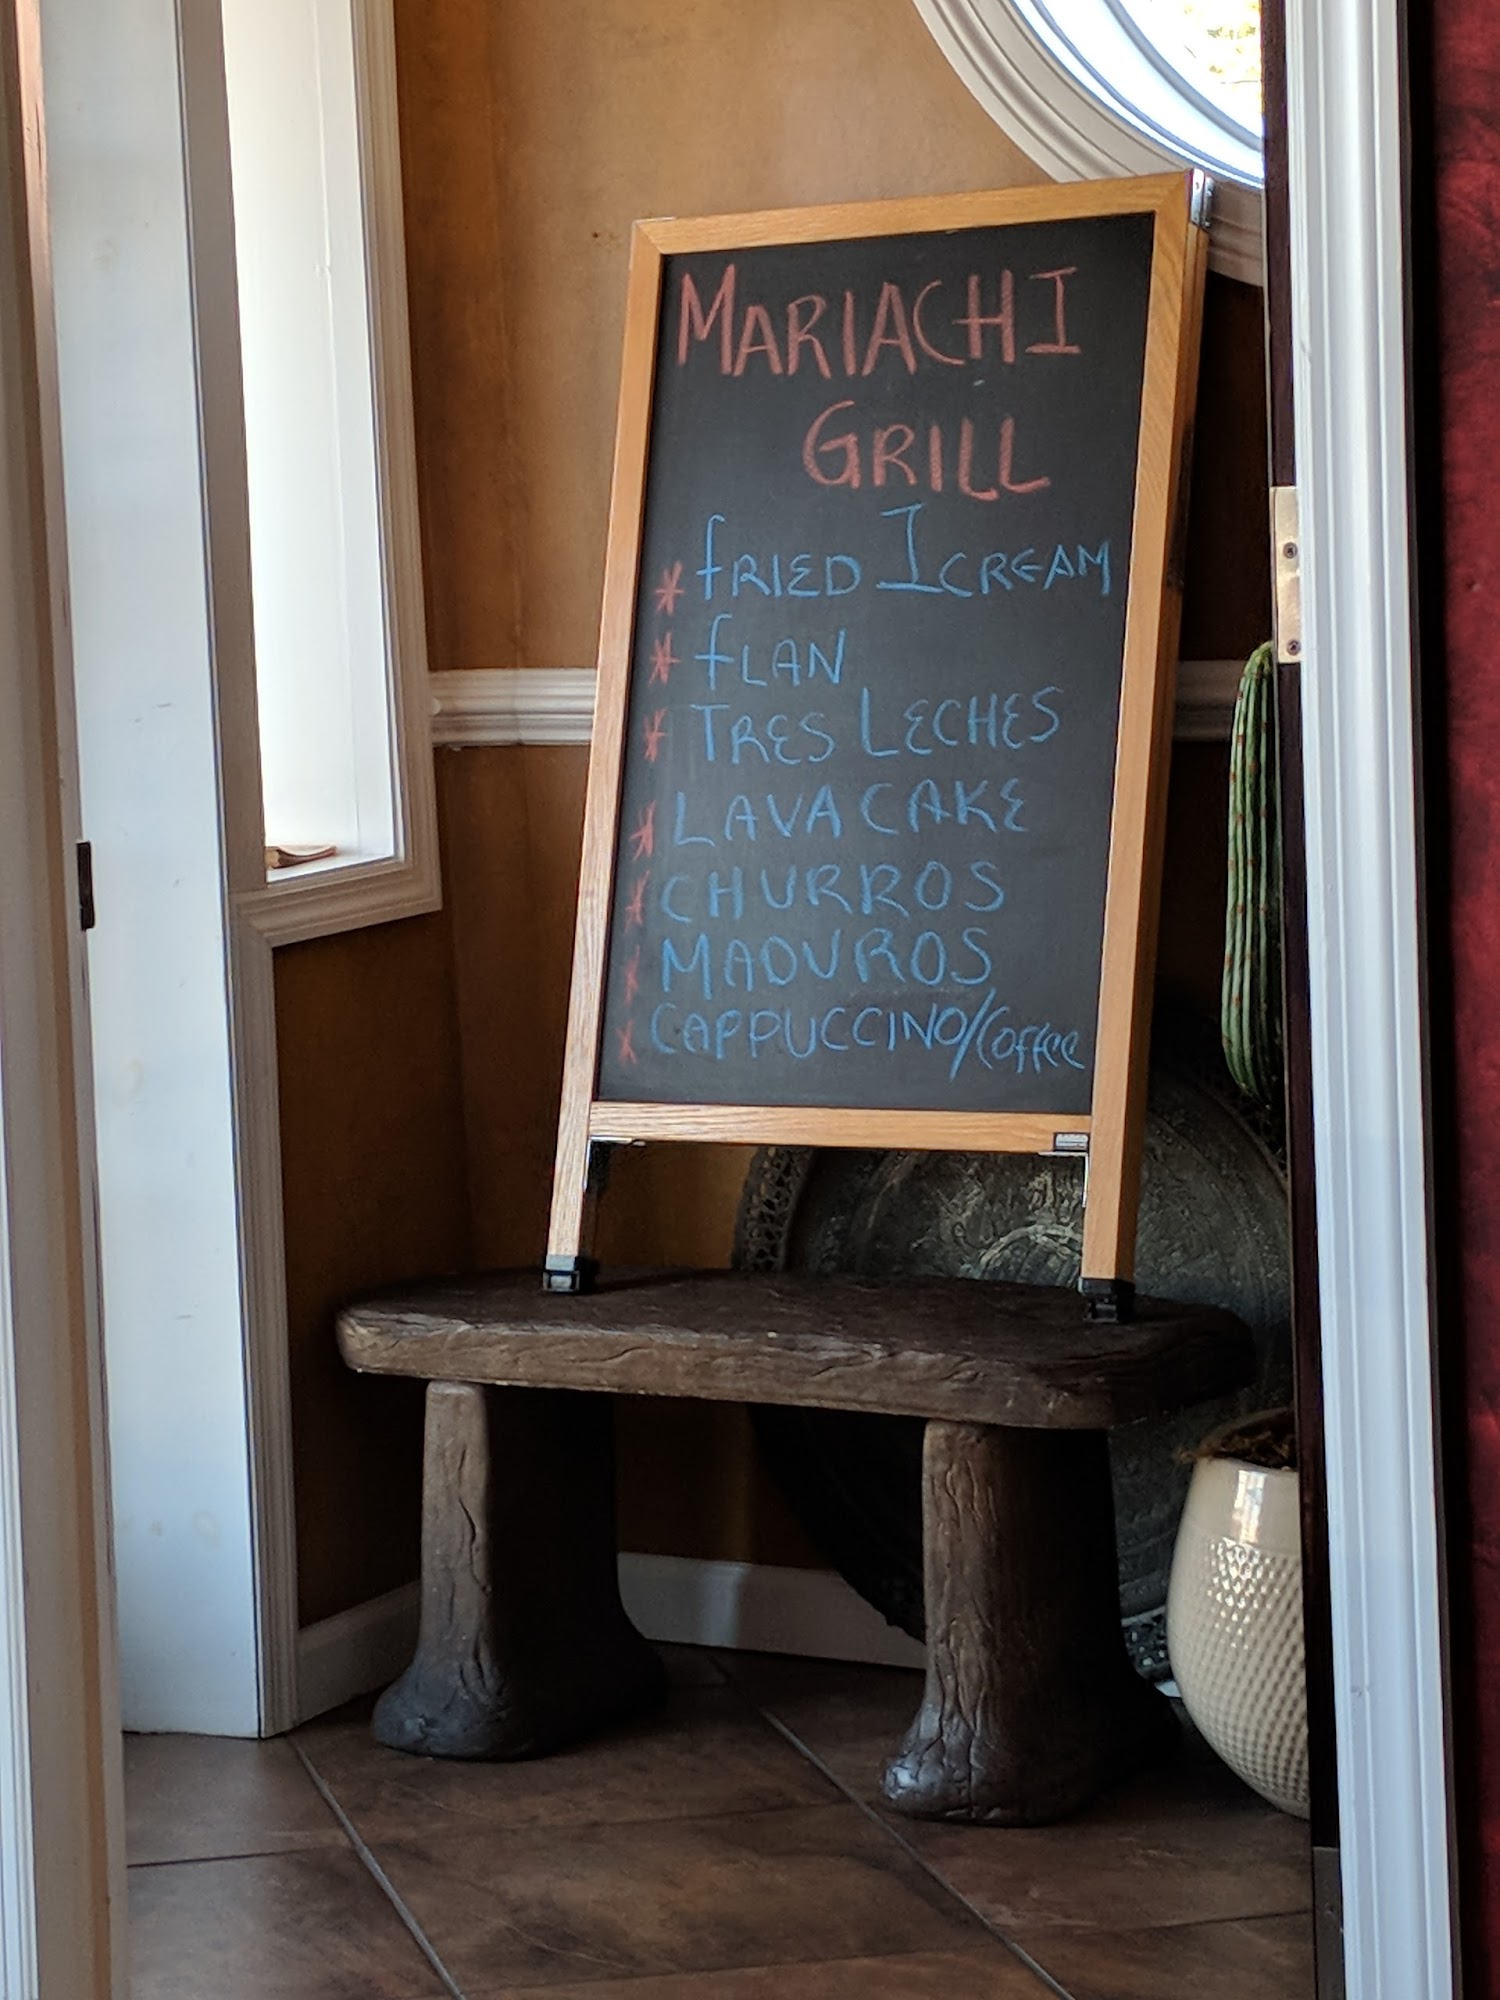 MARIACHI
GRILL
* fRIED ICREAM
* fLAN
* TRES LECHES
* LAVA CAKE
* CHURROS
* MADUROS
* CAPPUCCINO/Coffee